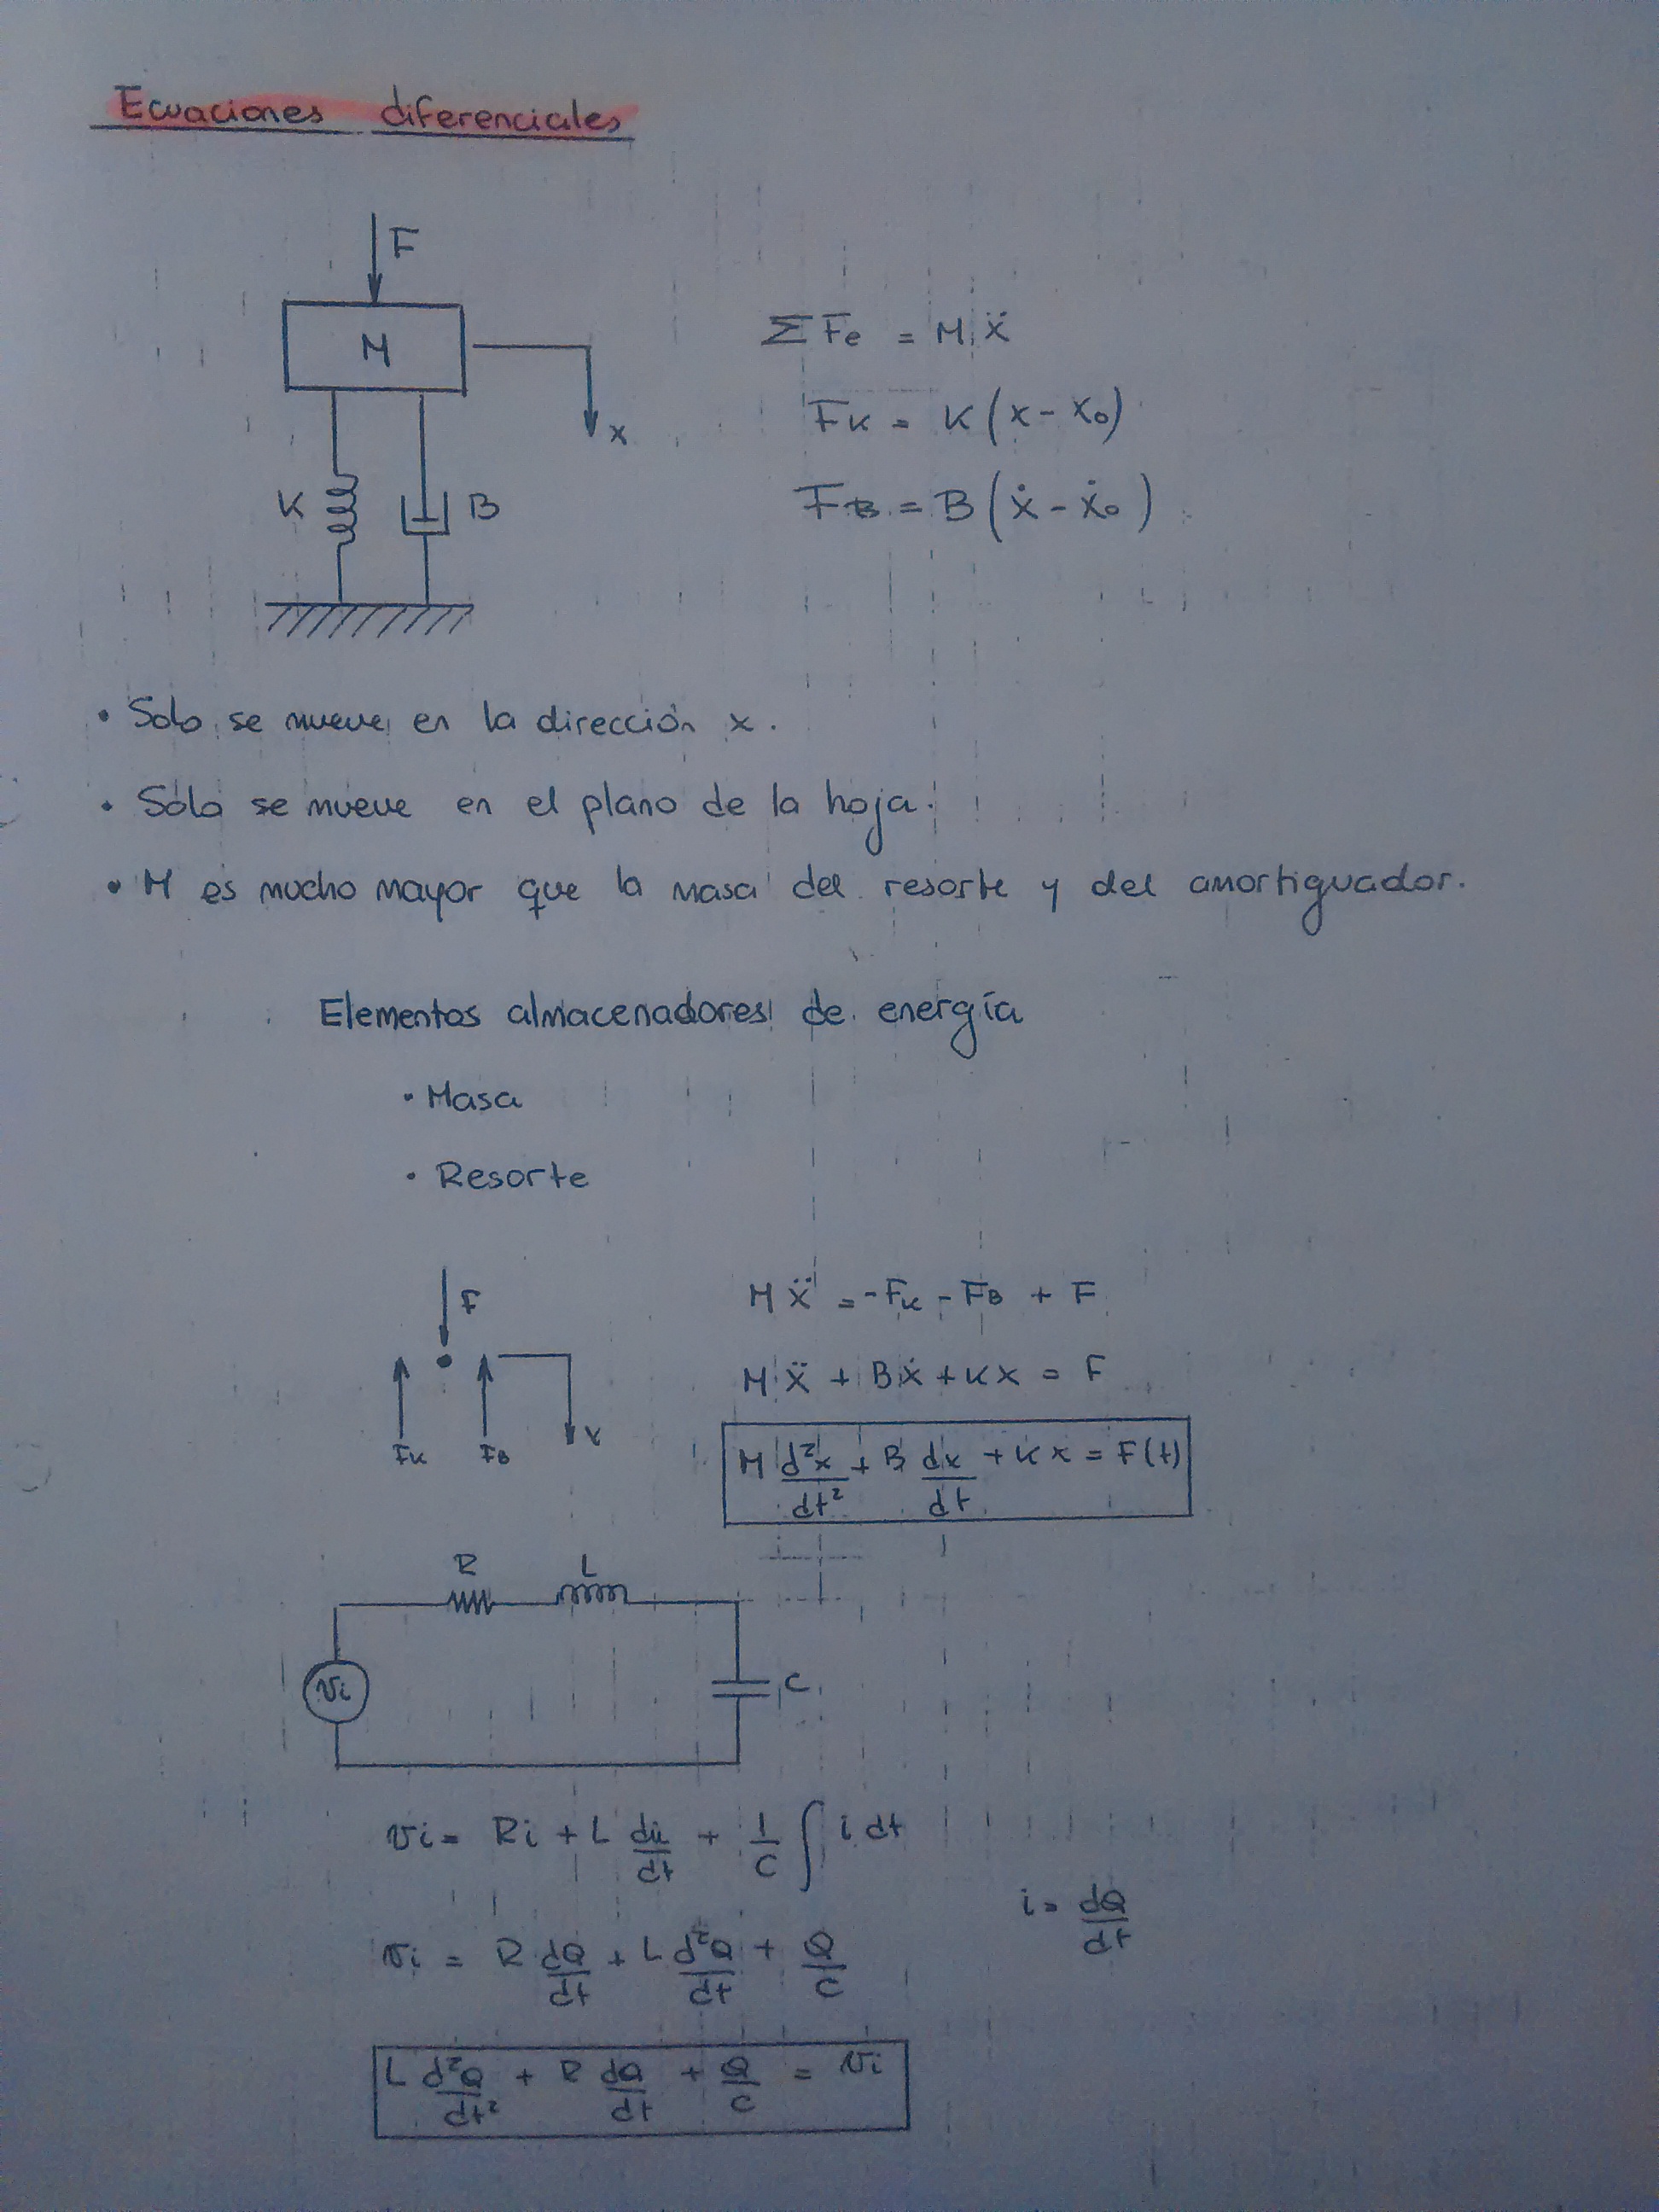 Ecuaciones diferenciales
F
M
x
K
B
ΣFe = M ẍ
FK = K (x - x₀)
FB = B (ẋ - ẋ₀)
• Solo se mueve en la dirección x.
• Sólo se mueve en el plano de la hoja.
• M es mucho mayor que la masa del resorte y del amortiguador.
Elementos almacenadores de energía
• Masa
• Resorte
F
FK FB x
M ẍ = -FK - FB + F
M ẍ + B ẋ + K x = F
M d²x/dt² + B dx/dt + K x = F(t)
R L
vi
C
vi = Ri + L di/dt + 1/C ∫ i dt
i = dQ/dt
vi = R dQ/dt + L d²Q/dt + Q/C
L d²Q/dt² + R dQ/dt + Q/C = vi